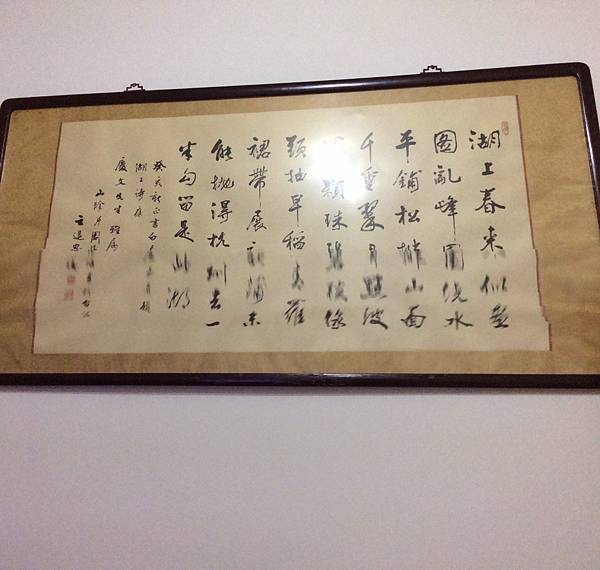 湖上春來似畫
圖亂峰圍繞水
平鋪松排山面
千重翠月點波
顆珠碧毯線
頭抽早稻青羅
裙帶展新蒲未
能拋得杭州去一
半勾留是此湖
癸亥新正書白
湖上詩應
慶文先生雅屬
山陰